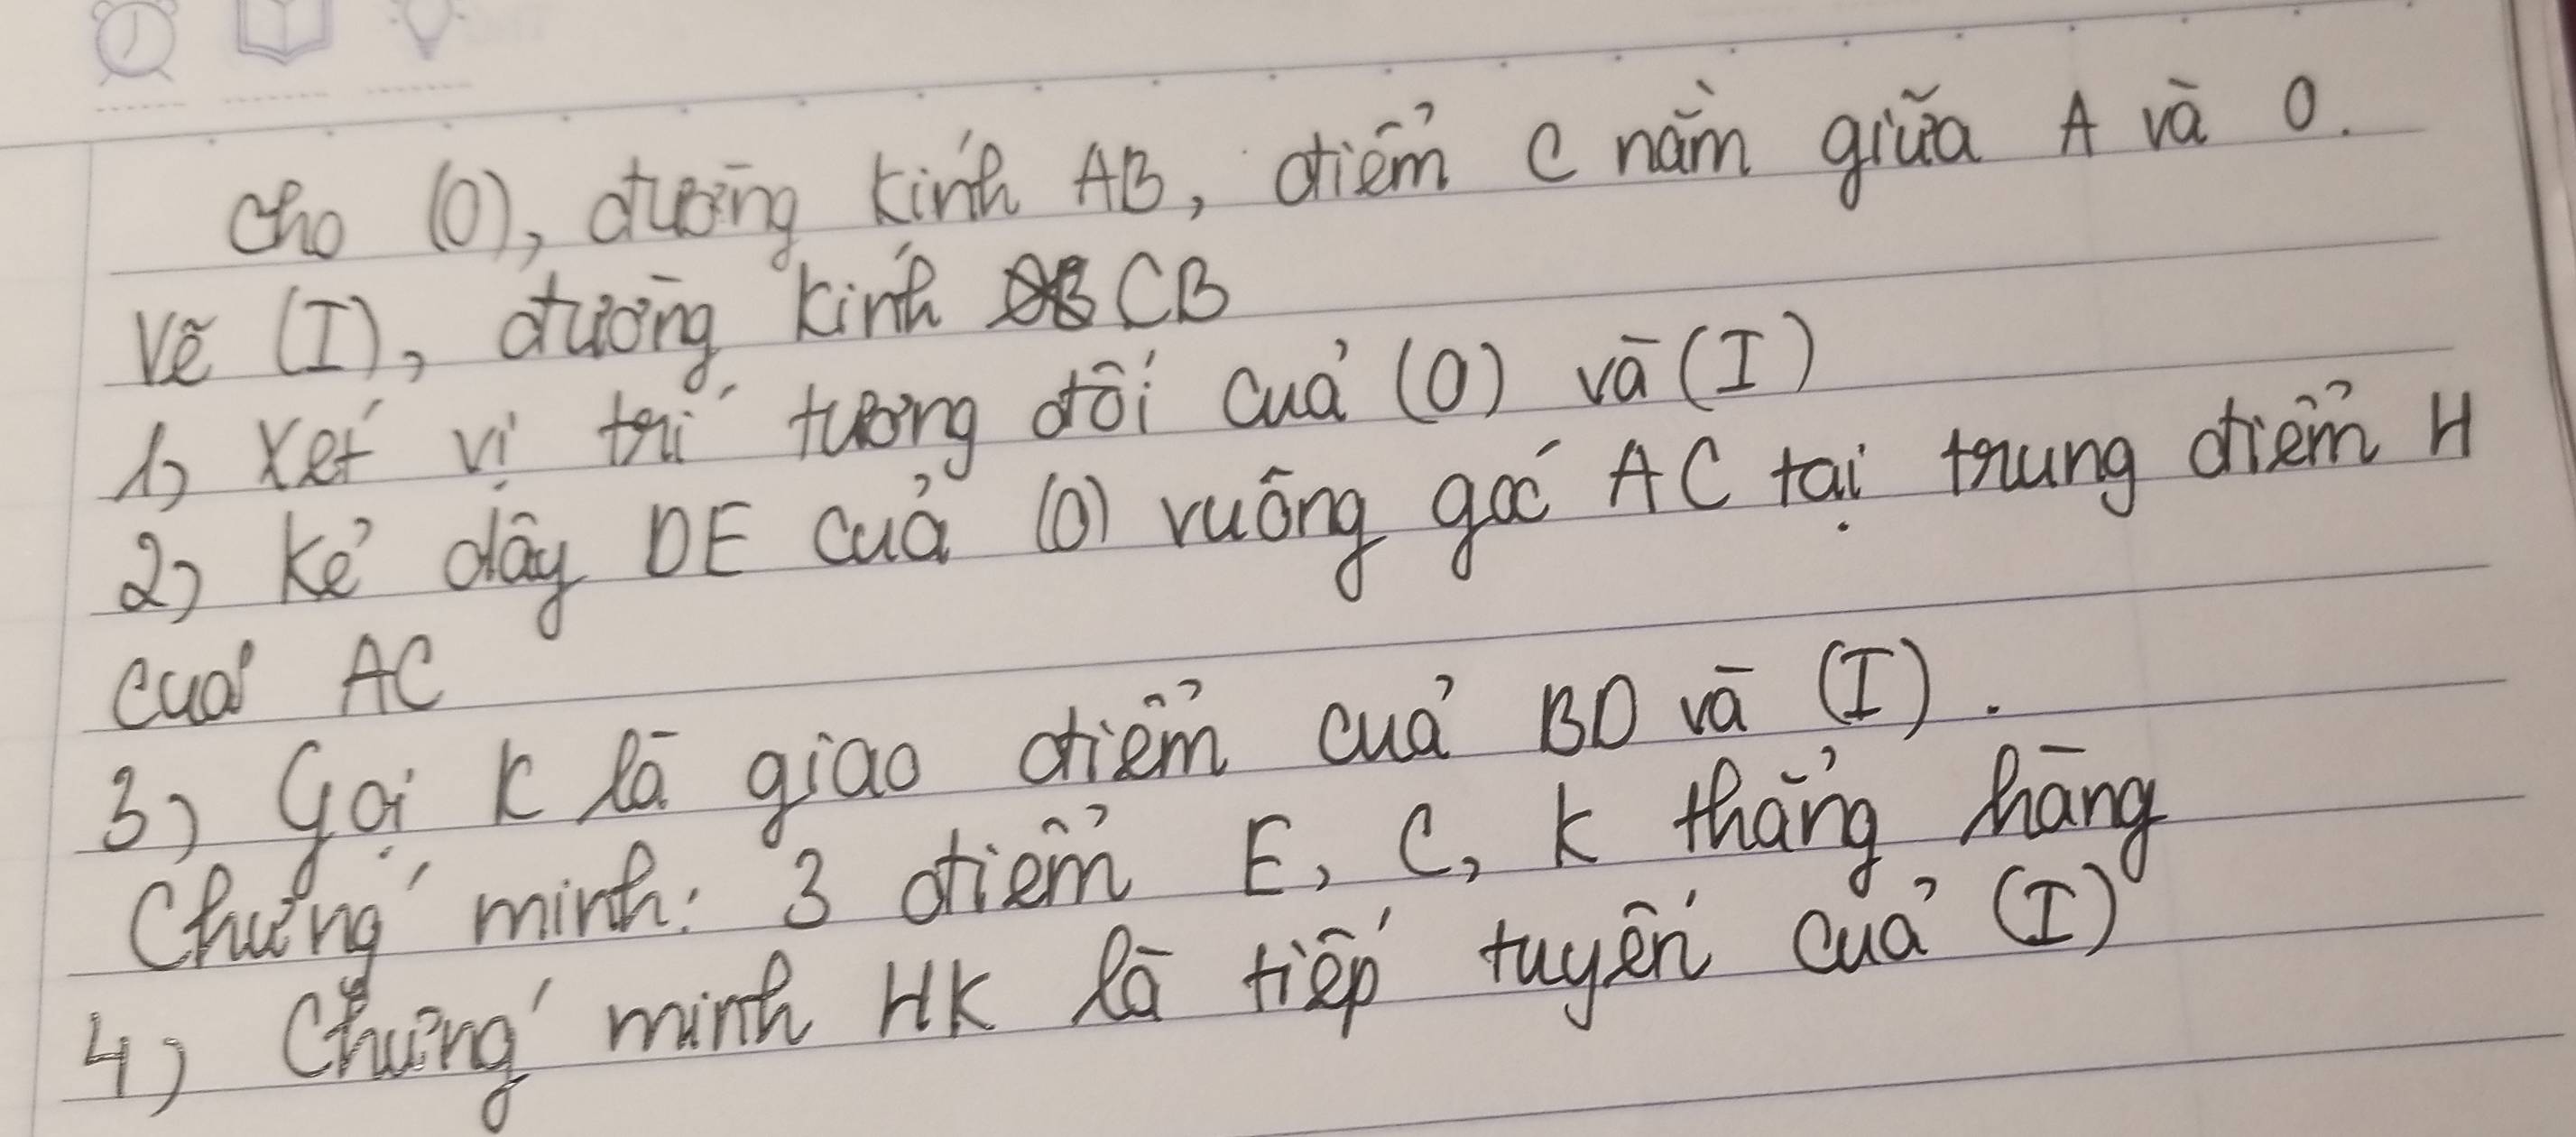 Cho (O), đường kính AB, điểm C nằm giữa A và O.
Vẽ (I), đường kính CB
1) Xét vị trí tương đối của (O) và (I)
2) Kẻ dây DE của (O) vuông góc AC tại trung điểm H
của AC
3) Gọi K là giao điểm của BD và (I).
Chứng minh: 3 điểm E, C, K thẳng hàng
4) Chứng minh HK là tiếp tuyến của (I)